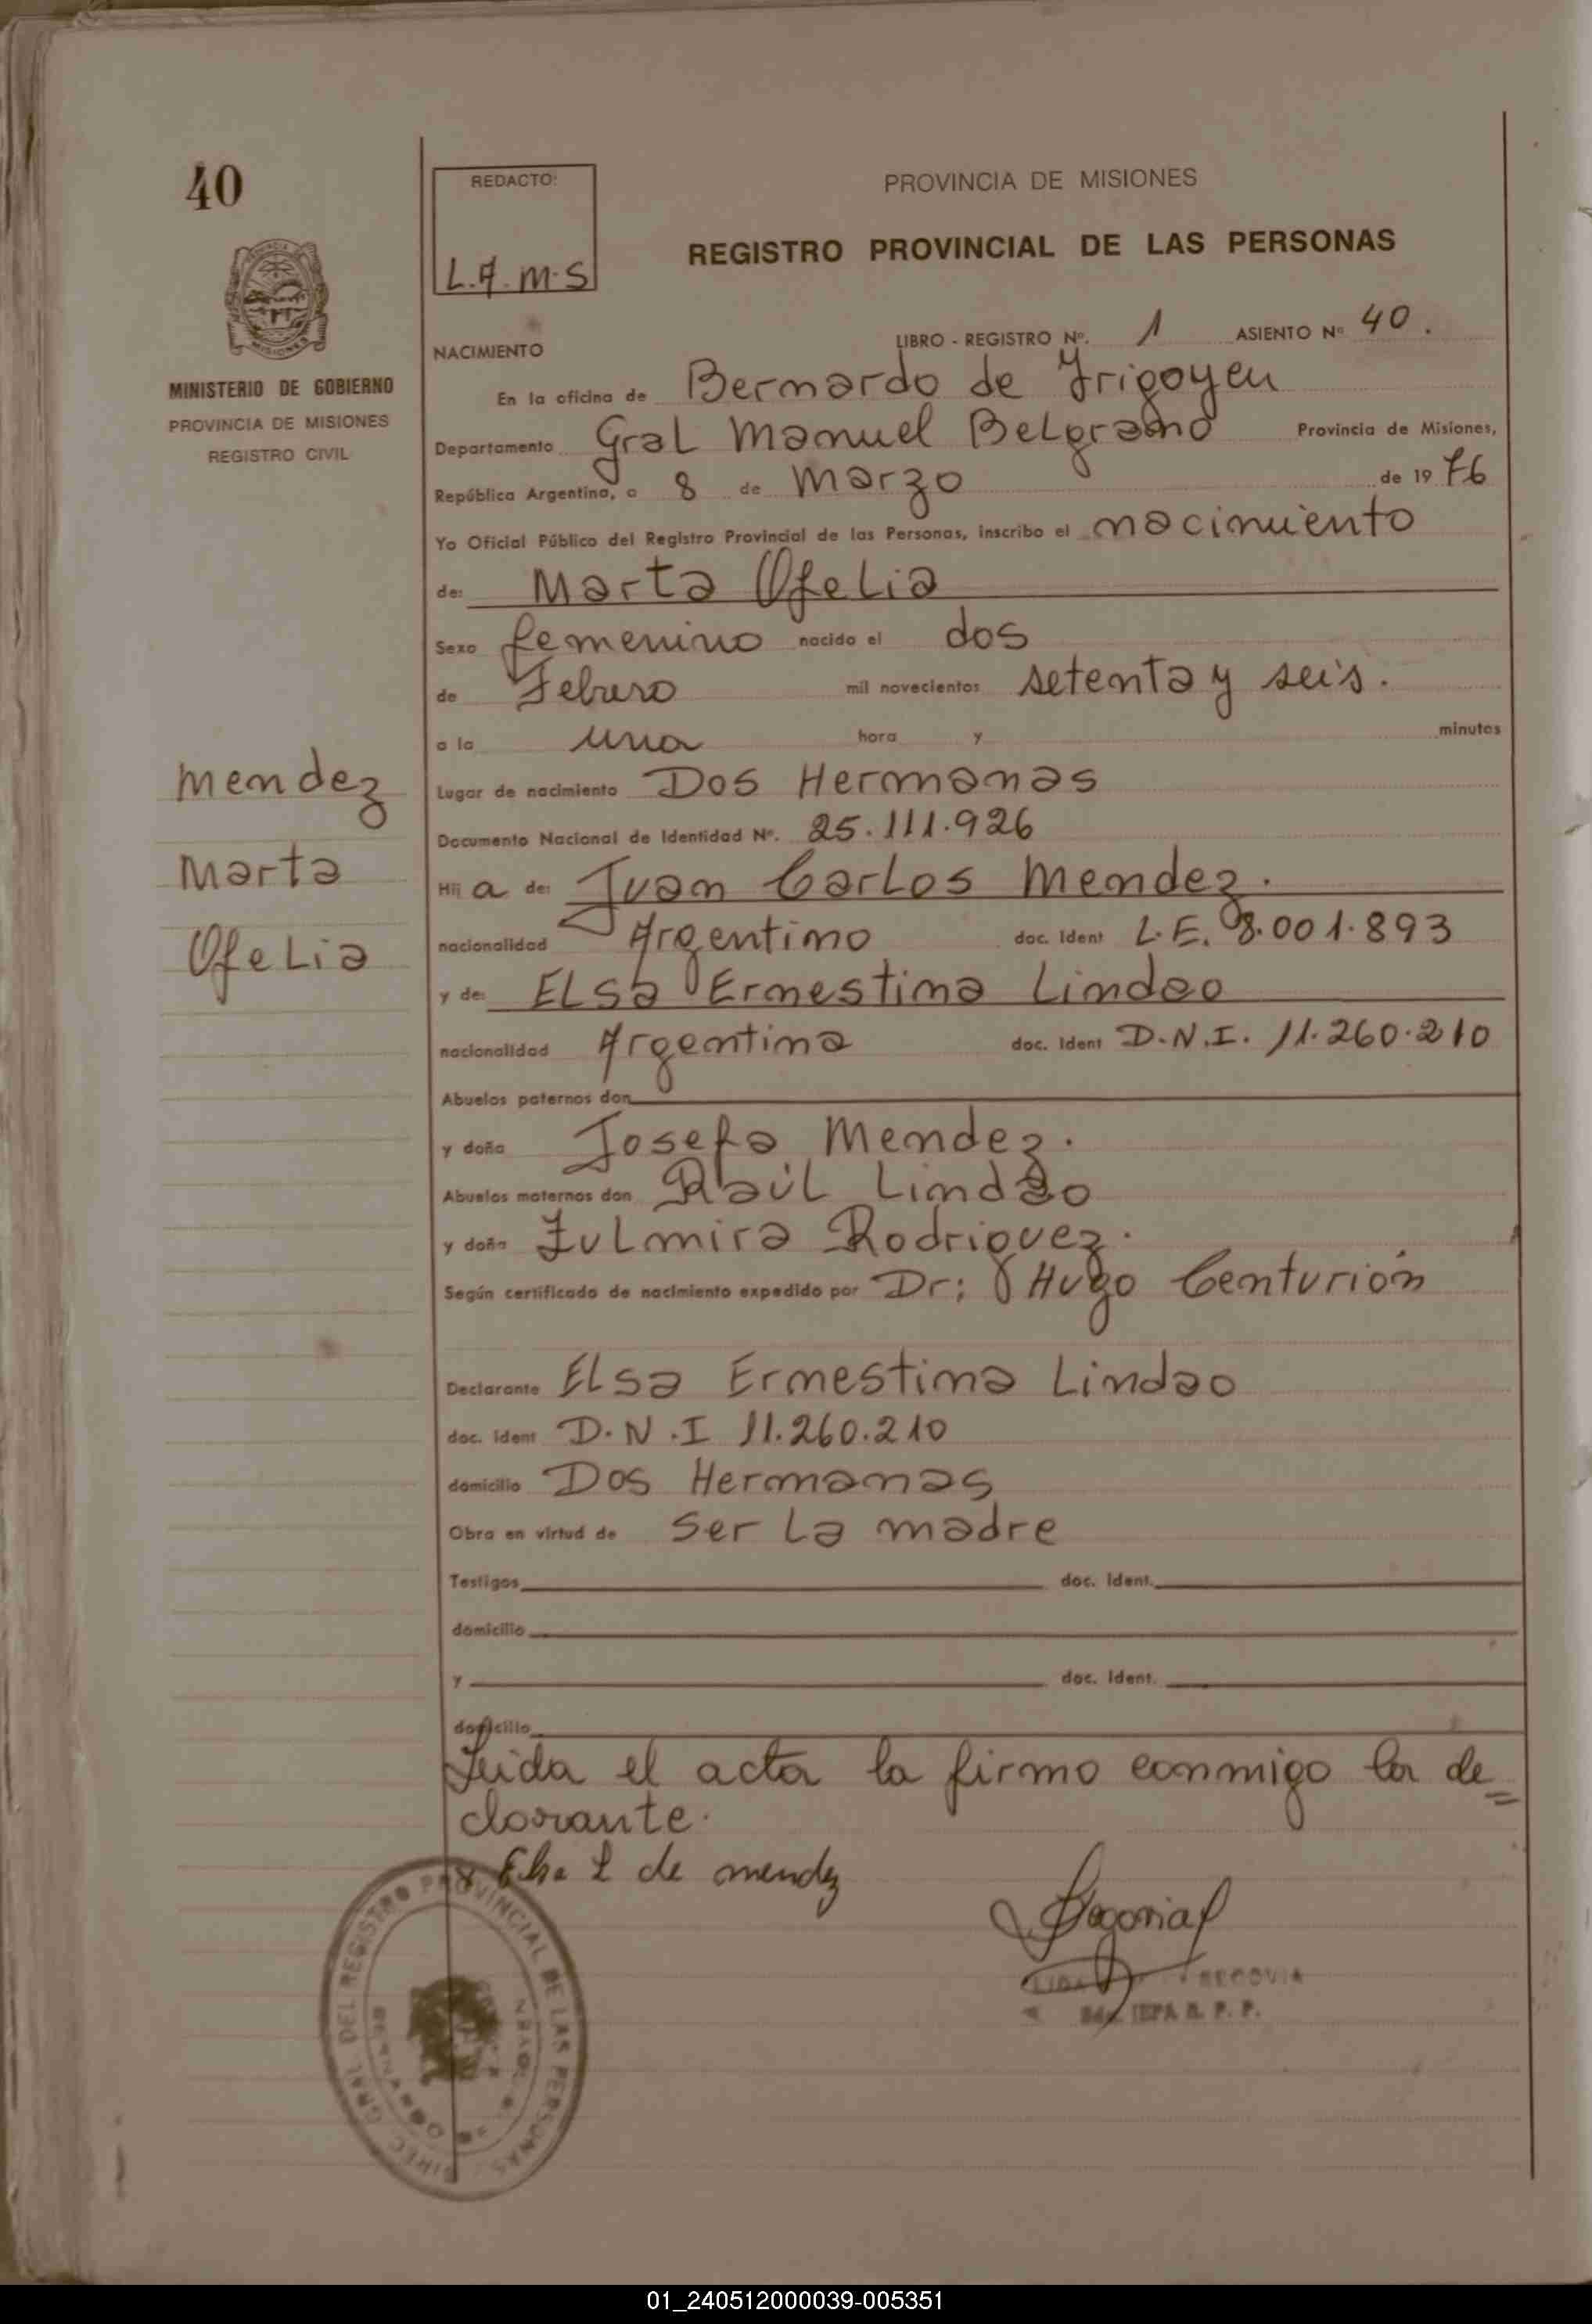 40
REDACTO:
L.A.M.S
PROVINCIA DE MISIONES
REGISTRO PROVINCIAL DE LAS PERSONAS
MISIONES
MINISTERIO DE GOBIERNO
PROVINCIA DE MISIONES
REGISTRO CIVIL
NACIMIENTO LIBRO - REGISTRO Nº. 1 ASIENTO Nº 40.
En la oficina de Bernardo de Irigoyen
Departamento Gral Manuel Belgrano Provincia de Misiones,
República Argentina, a 8 de Marzo de 1976
Yo Oficial Público del Registro Provincial de las Personas, inscribo el nacimiento
de: Marta Ofelia
Sexo femenino nacido el dos
de Febrero mil novecientos setenta y seis.
a la una hora y minutos
Mendez
Marta
Ofelia
Lugar de nacimiento Dos Hermanas
Documento Nacional de Identidad Nº. 25.111.926
Hija de: Juan Carlos Mendez.
nacionalidad Argentino doc. Ident L.E. 8.001.893
y de: Elsa Ernestina Lindao
nacionalidad Argentina doc. Ident D.N.I. 11.260.210
Abuelos paternos don
y doña Josefa Mendez.
Abuelos maternos don Raúl Lindao
y doña Zulmira Rodriguez.
Según certificado de nacimiento expedido por Dr; Hugo Centurión
Declarante Elsa Ernestina Lindao
doc. ident D.N.I 11.260.210
domicilio Dos Hermanas
Obra en virtud de ser la madre
Testigos doc. Ident.
domicilio
y doc. Ident.
domicilio
Leida el acta la firmo conmigo la de=
clarante.
x Elsa L de mendez
Segovia
SEGOVIA
R. P. P.
DIREC. GRAL. DEL REGISTRO PROVINCIAL DE LAS PERSONAS
BERNARDO DE
01_240512000039-005351